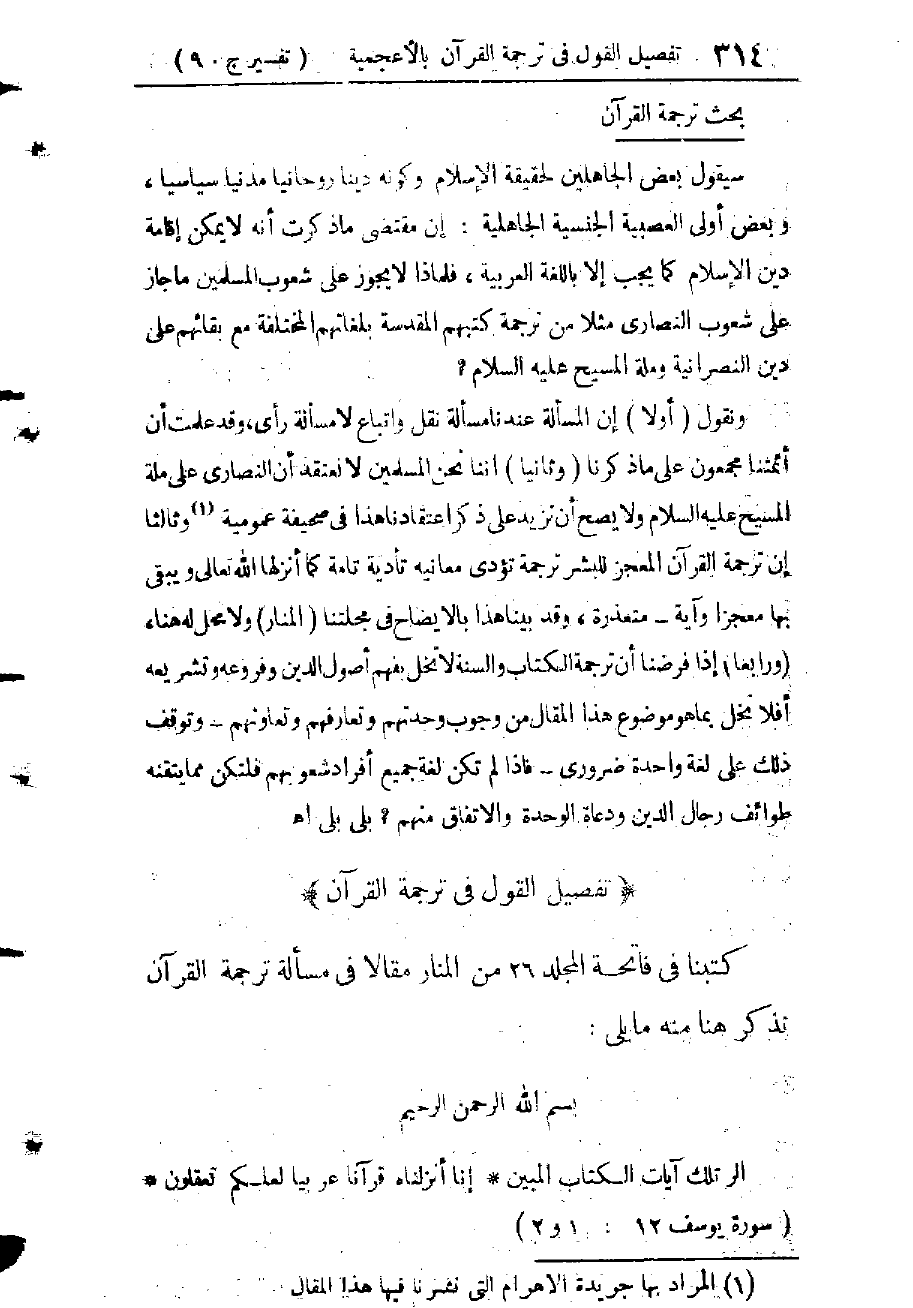 ٣١٤ تفصيل القول فى ترجمة القرآن بالأعجمية ( تفسير ج ٩٠ )
بحث ترجمة القرآن
سيقول بعض الجاهلين لحقيقة الإسلام وكونه دينا روحانيا مدنيا سياسيا ،
وبعض أولى العصبية الجنسية الجاهلية : إن مقتضى ماذكرت أنه لايمكن إقامة
دين الإسلام كما يجب إلا باللغة العربية ، فلماذا لايجوز على شعوب المسلمين ماجاز
على شعوب النصارى مثلا من ترجمة كتبهم المقدسة بلغاتهم المختلفة مع بقائهم على
دين النصرانية وملة المسيح عليه السلام ?
ونقول ( أولا ) إن المسألة عندنا مسألة نقل واتباع لا مسألة رأى ، وقد علمت أن
أئمتنا مجمعون على ماذكرنا ( وثانيا ) اننا نحن المسلمين لا نعتقد أن النصارى على ملة
المسيح عليه السلام ولا يصح أن نزيد على ذكر اعتقادنا هذا فى صحيفة عمومية (١) وثالثا
إن ترجمة القرآن المعجز للبشر ترجمة تؤدى معانيه تأدية تامة كما أنزلها الله تعالى ويبقى
بها معجزا وآية ــ متعذرة ، وقد بينا هذا بالايضاح فى مجلتنا ( المنار ) ولا محل له هنا ،
(ورابعا) إذا فرضنا أن ترجمة الكتاب والسنة لا تخل بفهم أصول الدين وفروعه وتشريعه
أفلا تخل بماهو موضوع هذا المقال من وجوب وحدتهم وتعارفهم وتعاونهم ــ وتوقف
ذلك على لغة واحدة ضرورى ــ فاذا لم تكن لغة جميع أفراد شعوبهم فلتكن ممايتقنه
طوائف رجال الدين ودعاة الوحدة والاتفاق منهم ? بلى بلى اه
﴿ تفصيل القول فى ترجمة القرآن ﴾
كتبنا فى فاتحة المجلد ٢٦ من المنار مقالا فى مسألة ترجمة القرآن
نذكر هنا منه مايلى :
بسم الله الرحمن الرحيم
الر تلك آيات الكتاب المبين * إنا أنزلناه قرآنا عربيا لعلكم تعقلون *
( سورة يوسف ١٢ : ١ و ٢ )
(١) المراد بها جريدة الاهرام التى نشرنا فيها هذا المقال